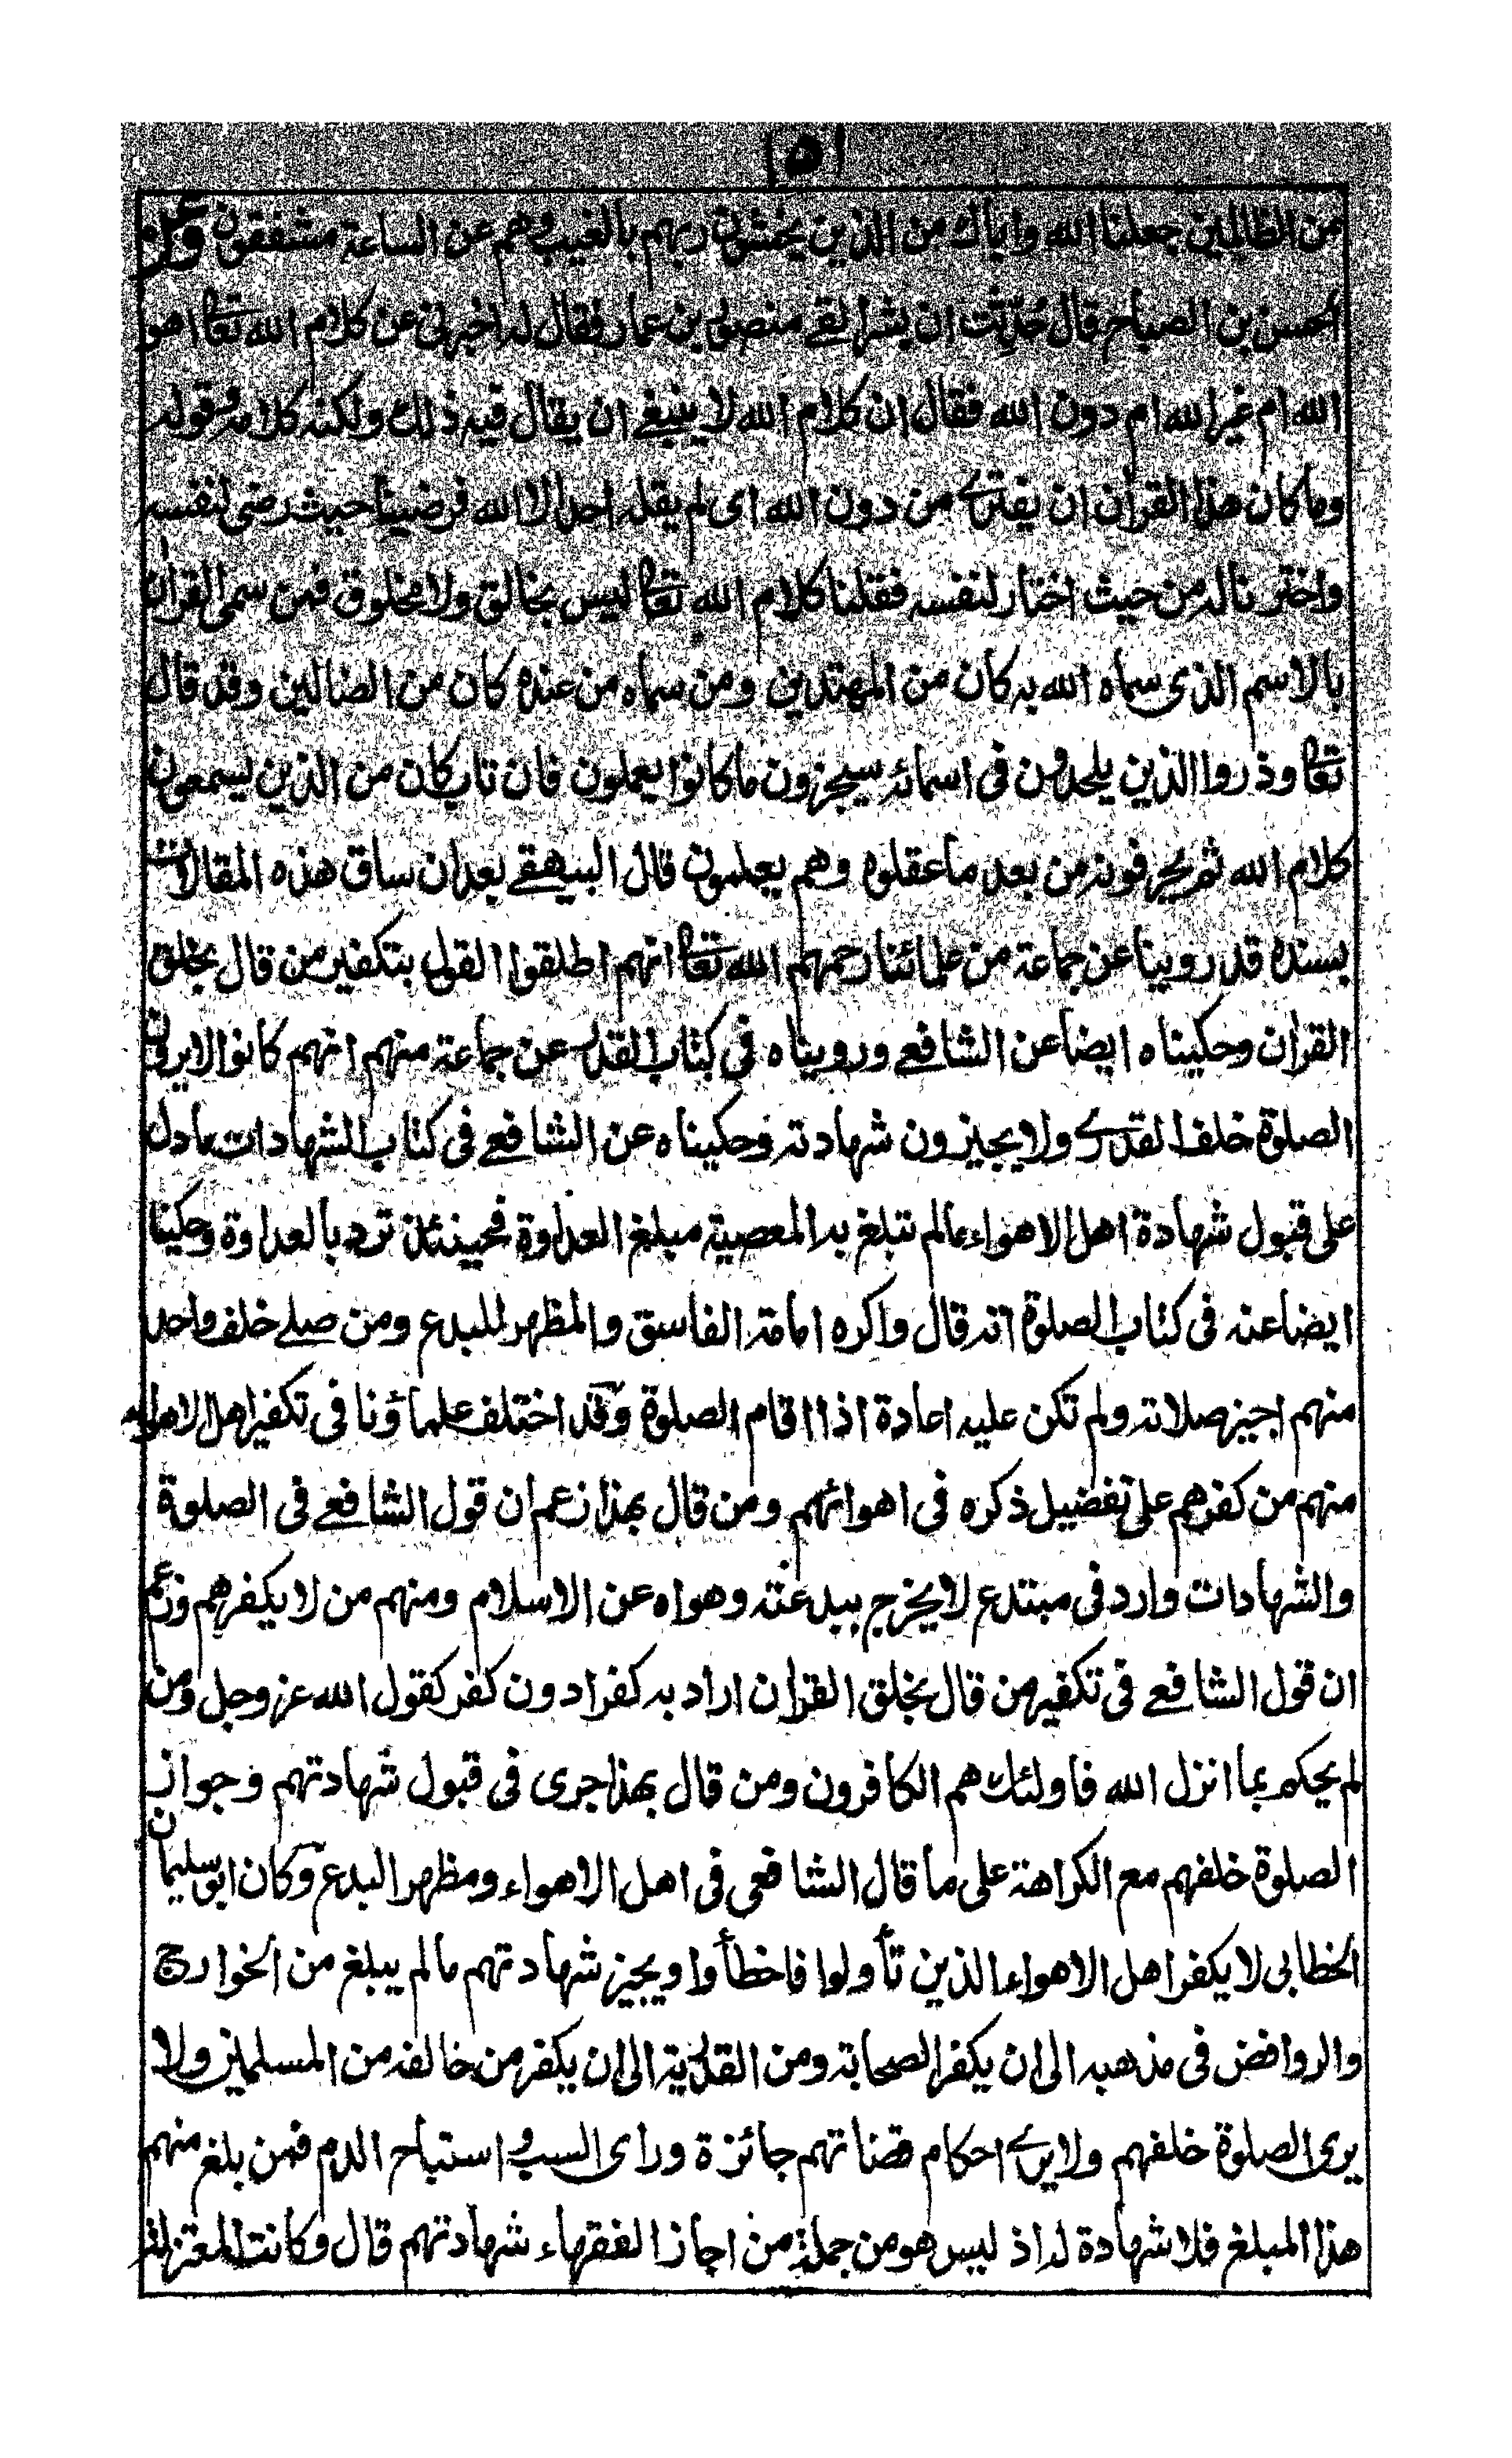 ١٥١
من الظالمين جعلنا الله واياك من الذين يخشون ربهم بالغيب وهم عن الساعة مشفقون وعن
الحسن بن الصباح قال حُدِّثت ان بشرا لقے منصور بن عمار فقال له اخبرنى عن كلام الله تعالى اهو
الله ام غير الله ام دون الله فقال ان كلام الله لا ينبغے ان يقال فيه ذلك ولكنه كلامه وقوله
وما كان هذا القرآن ان يفترے من دون الله اى لم يقله احد الا الله فرضينا حيث رضى لنفسه
واخترنا له من حيث اختار لنفسه فقلنا كلام الله تعالى ليس بخالق ولا مخلوق فمن سمى القرآن
بالاسم الذى سماه الله به كان من المهتدين ومن سماه من عنده كان من الضالين وقد قال
تعالى وذروا الذين يلحدون فى اسمائه سيجزون ما كانوا يعملون فان تاب كان من الذين يسمعون
كلام الله ثم يحرفونه من بعد ما عقلوه وهم يعلمون قال البيهقے بعد ان ساق هذه المقالات
بسنده قد روينا عن جماعة من علمائنا رحمهم الله تعالى انهم اطلقوا القول بتكفير من قال بخلق
القرآن وحكيناه ايضا عن الشافعے ورويناه فى كتاب القدر عن جماعة منهم انهم كانوا لا يرون
الصلوة خلف القدرے ولا يجيزون شهادته وحكيناه عن الشافعے فى كتاب الشهادات مادل
على قبول شهادة اهل الاهواء مالم تبلغ به المعصية مبلغ العداوة فحينئذ ترد بالعداوة وحكينا
ايضا عنه فى كتاب الصلوة انه قال واكره امامة الفاسق والمظهر للبدع ومن صلے خلف واحد
منهم اجيز صلاته ولم تكن عليه اعادة اذا اقام الصلوة وقد اختلف علماؤنا فى تكفير اهل الاهواء
منهم من كفرهم على تفضيل ذكره فى اهوائهم ومن قال بهذا زعم ان قول الشافعے فى الصلوة
والشهادات وارد فى مبتدع لا يخرج ببدعته وهواه عن الاسلام ومنهم من لا يكفرهم وزعم
ان قول الشافعے فى تكفير من قال بخلق القرآن اراد به كفرا دون كفر كقول الله عز وجل ومن
لم يحكم بما انزل الله فاولئك هم الكافرون ومن قال بهذا جرى فى قبول شهادتهم وجواز
الصلوة خلفهم مع الكراهة على ما قال الشافعى فى اهل الاهواء ومظهر البدع وكان ابو سليمان
الخطابى لا يكفر اهل الاهواء الذين تأولوا فاخطأوا ويجيز شهادتهم مالم يبلغ من الخوارج
والروافض فى مذهبه الى ان يكفر الصحابة ومن القدرية الى ان يكفر من خالفه من المسلمين ولا
يرى الصلوة خلفهم ولا يرے احكام قضاتهم جائزة وراى السب و استباح الدم فمن بلغ منهم
هذا المبلغ فلا شهادة له اذ ليس هو من جملة من اجاز الفقهاء شهادتهم قال وكانت المعتزلة